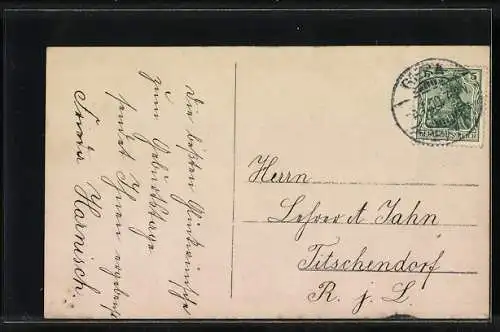 Die besten Glückwünsche
zum Geburtstage
sendet Ihnen ergebenst
Frieda Harnisch.
Herrn
Lehrer A Jahn
Titschendorf
R. j. L.
GERA
5